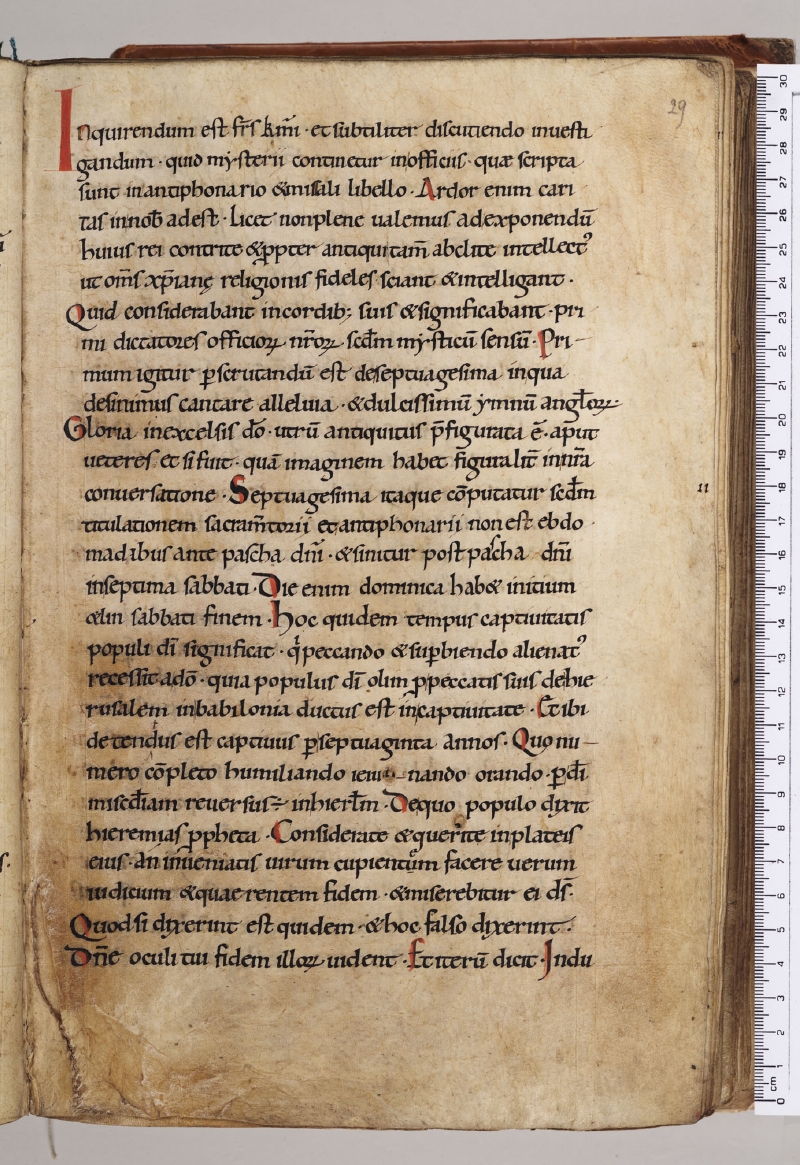 29
Inquirendum est fr̄s km̄i · et subtiliter discutiendo inuesti
gandum · quid mysterii continetur inofficiis · quæ scripta
sunt inantiphonario &missali libello · Ardor enim cari
tas innob̄ adest · Licet nonplene ualemus adexponendū
huius rei contrite &ꝓpter antiquitam̄ abolite intellect᾽
ut om̄s xp̄ianę religionis fideles sciant &intelligant ·
Quid considerabant incordib; suis &significabant · pri
mi dictatores officioꝝ nr̄oꝝ scd̄m mysticū sensū · Pri-
mum igitur ꝑscrutandū est deseptuagesima inqua
desinimus cantare alleluia · &dulcissimū ymnū anglōꝝ
Gloria inexcelsis dō · utrū antiquitus p̄figurata ē · aput
ueteres et si fuit · quā imaginem habet figuralit̄ innr̄a
conuersatione · Septuagesima itaque cōputatur scd̄m
11
titulationem sacram̄torii et antiphonarii non est ebdo
madibus ante pascha dn̄i · &finitur post pascha dn̄i
inseptima sabbati · Die enim dominica hab& initium
&in sabbati finem · Hoc quidem tempus captiuitatis
populi dī significat · q peccando &suꝑbiendo alienat᾽
recessit adō · quia populus dī olim ꝓpeccatis suis dehie
rusalem inbabilonia ductus est incaptiuitate · Et ibi
detentus est captiuus ꝑseptuaginta annos · Quo nu-
mero cōpleto humiliando ieiu-nando orando · ꝑdī
misc̄diam reuersus÷ inhierl̄m · Dequo populo dixit
hieremias ꝓpheta · Considerate &querite inplateis
eius · an inueniatis uirum cupientem facere uerum
iudicium &quaerentem fidem · &miserebitur ei ds̄·
Quod si dixerint est quidem · &hoc falso dixerint ·
Dn̄e oculi tui fidem illoꝝ uident · Et iterū dicit · Indu